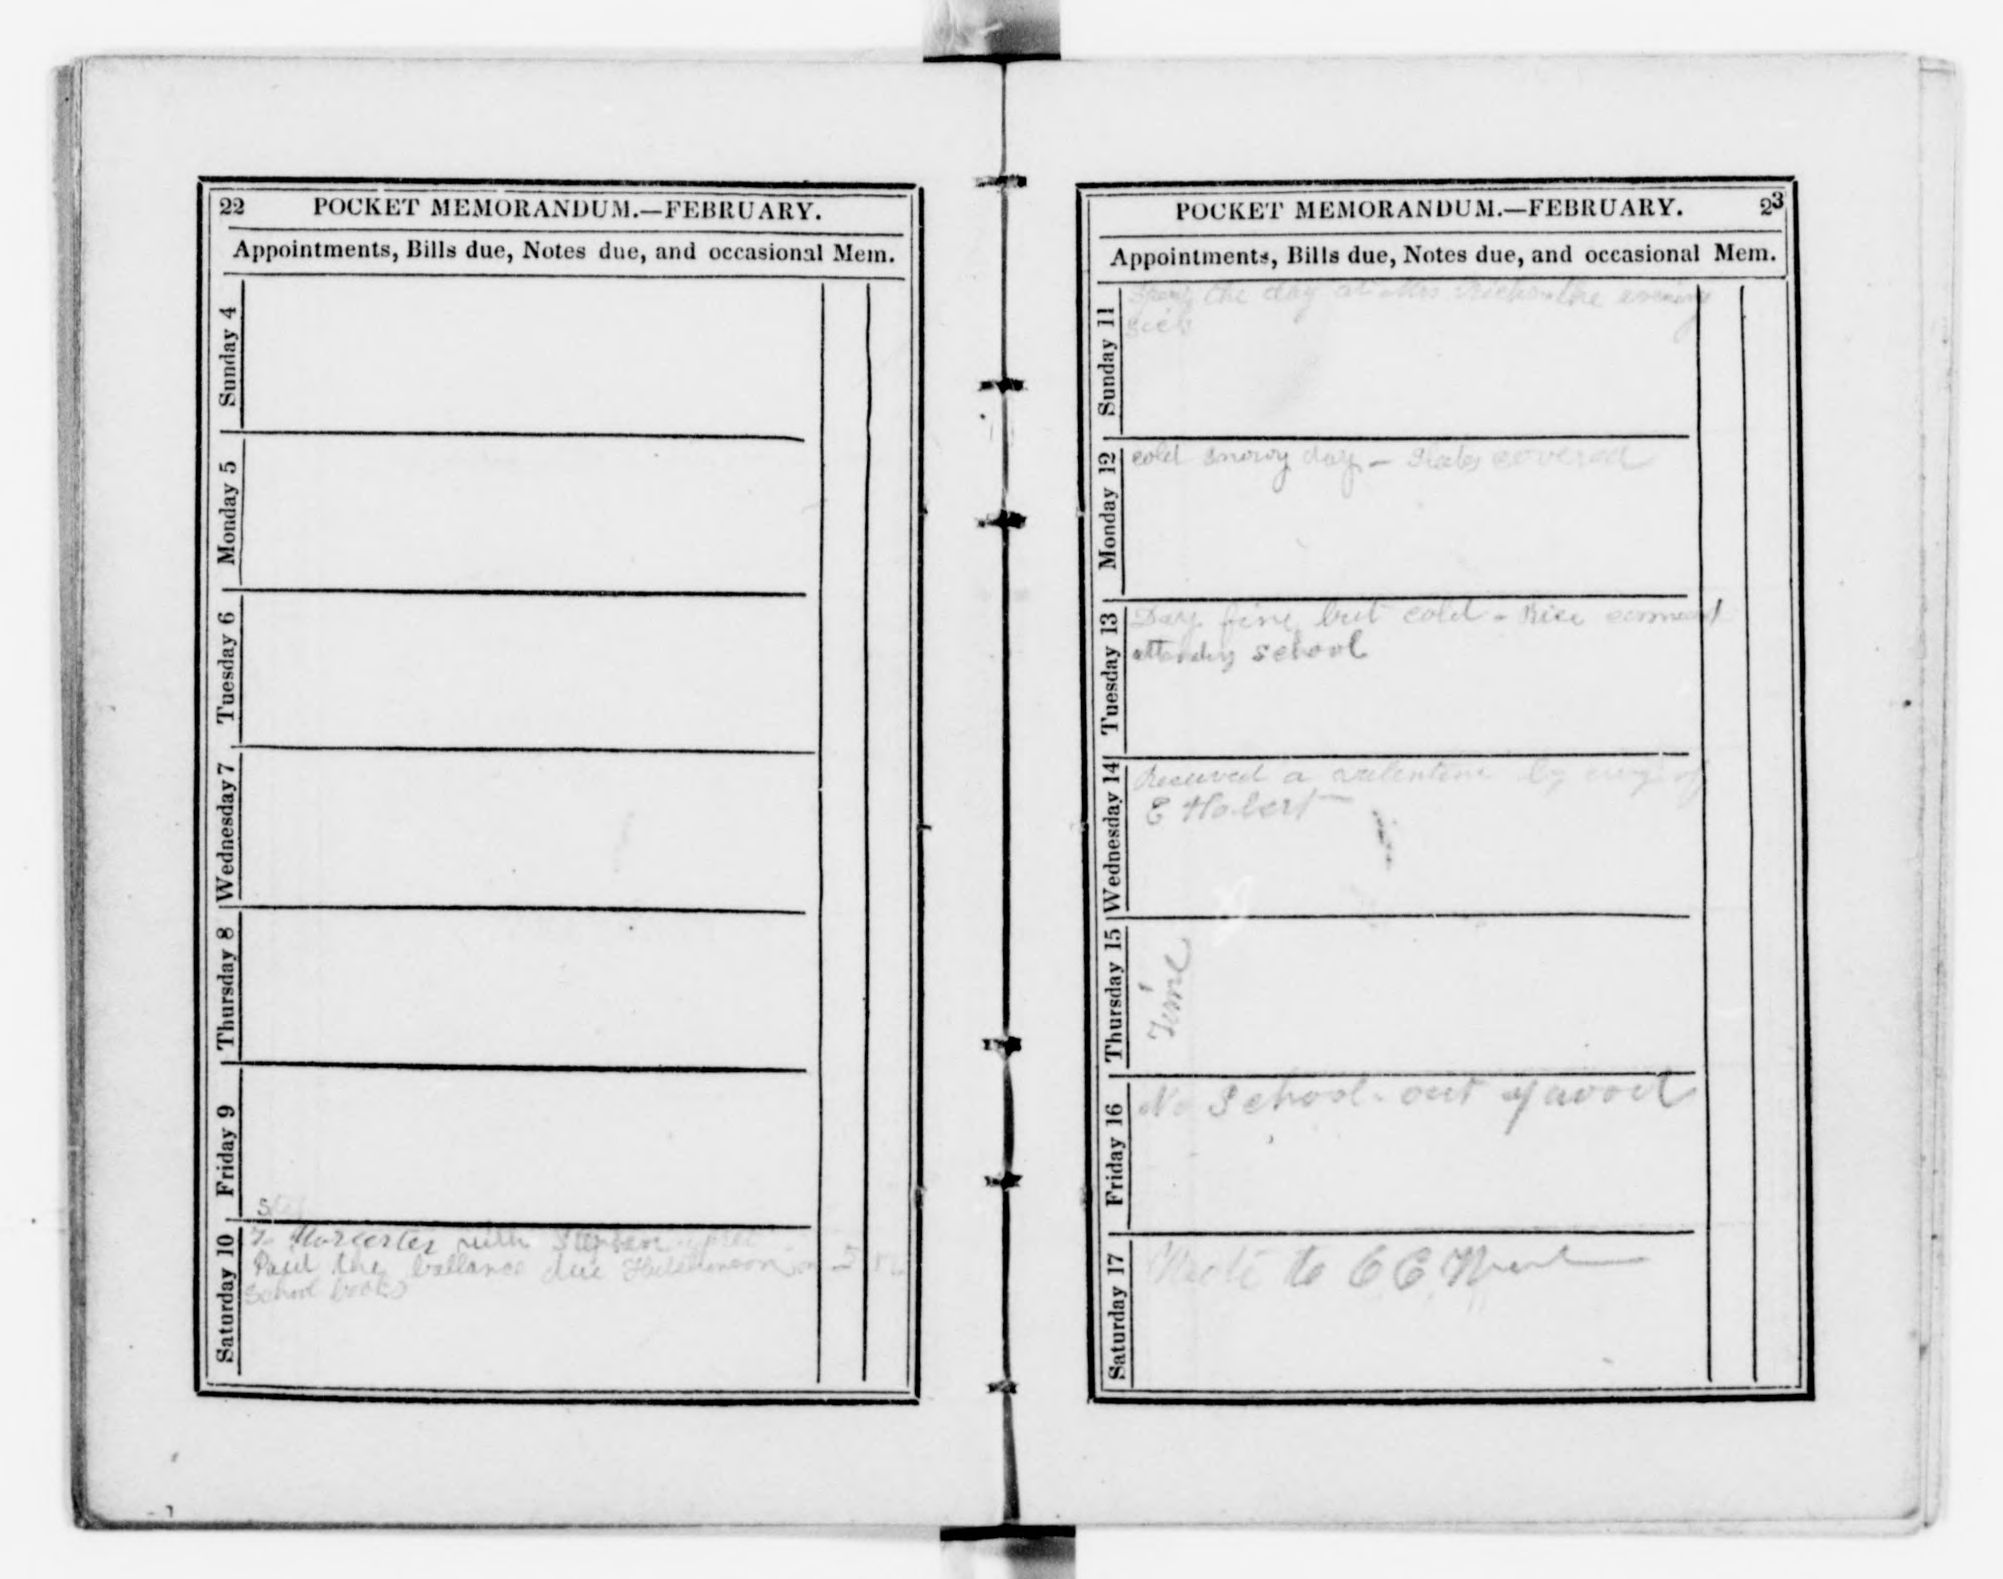 22 POCKET MEMORANDUM.—FEBRUARY.
Appointments, Bills due, Notes due, and occasional Mem.
Sunday 4
Monday 5
Tuesday 6
Wednesday 7
Thursday 8
Friday 9
Saturday 10
To Worcester with Stephen
Paid the ballance due Hutchinson on 5
School books
POCKET MEMORANDUM.—FEBRUARY. 23
Appointments, Bills due, Notes due, and occasional Mem.
Sunday 11
Spent the day at Mrs the evening
sick
Monday 12
cold snowy day – covered
Tuesday 13
Day fine but cold - Rice
attending school
Wednesday 14
Received a valentine by way of
E Hobert
Thursday 15
Time
Friday 16
No School - out of wood
Saturday 17
Wrote to C C